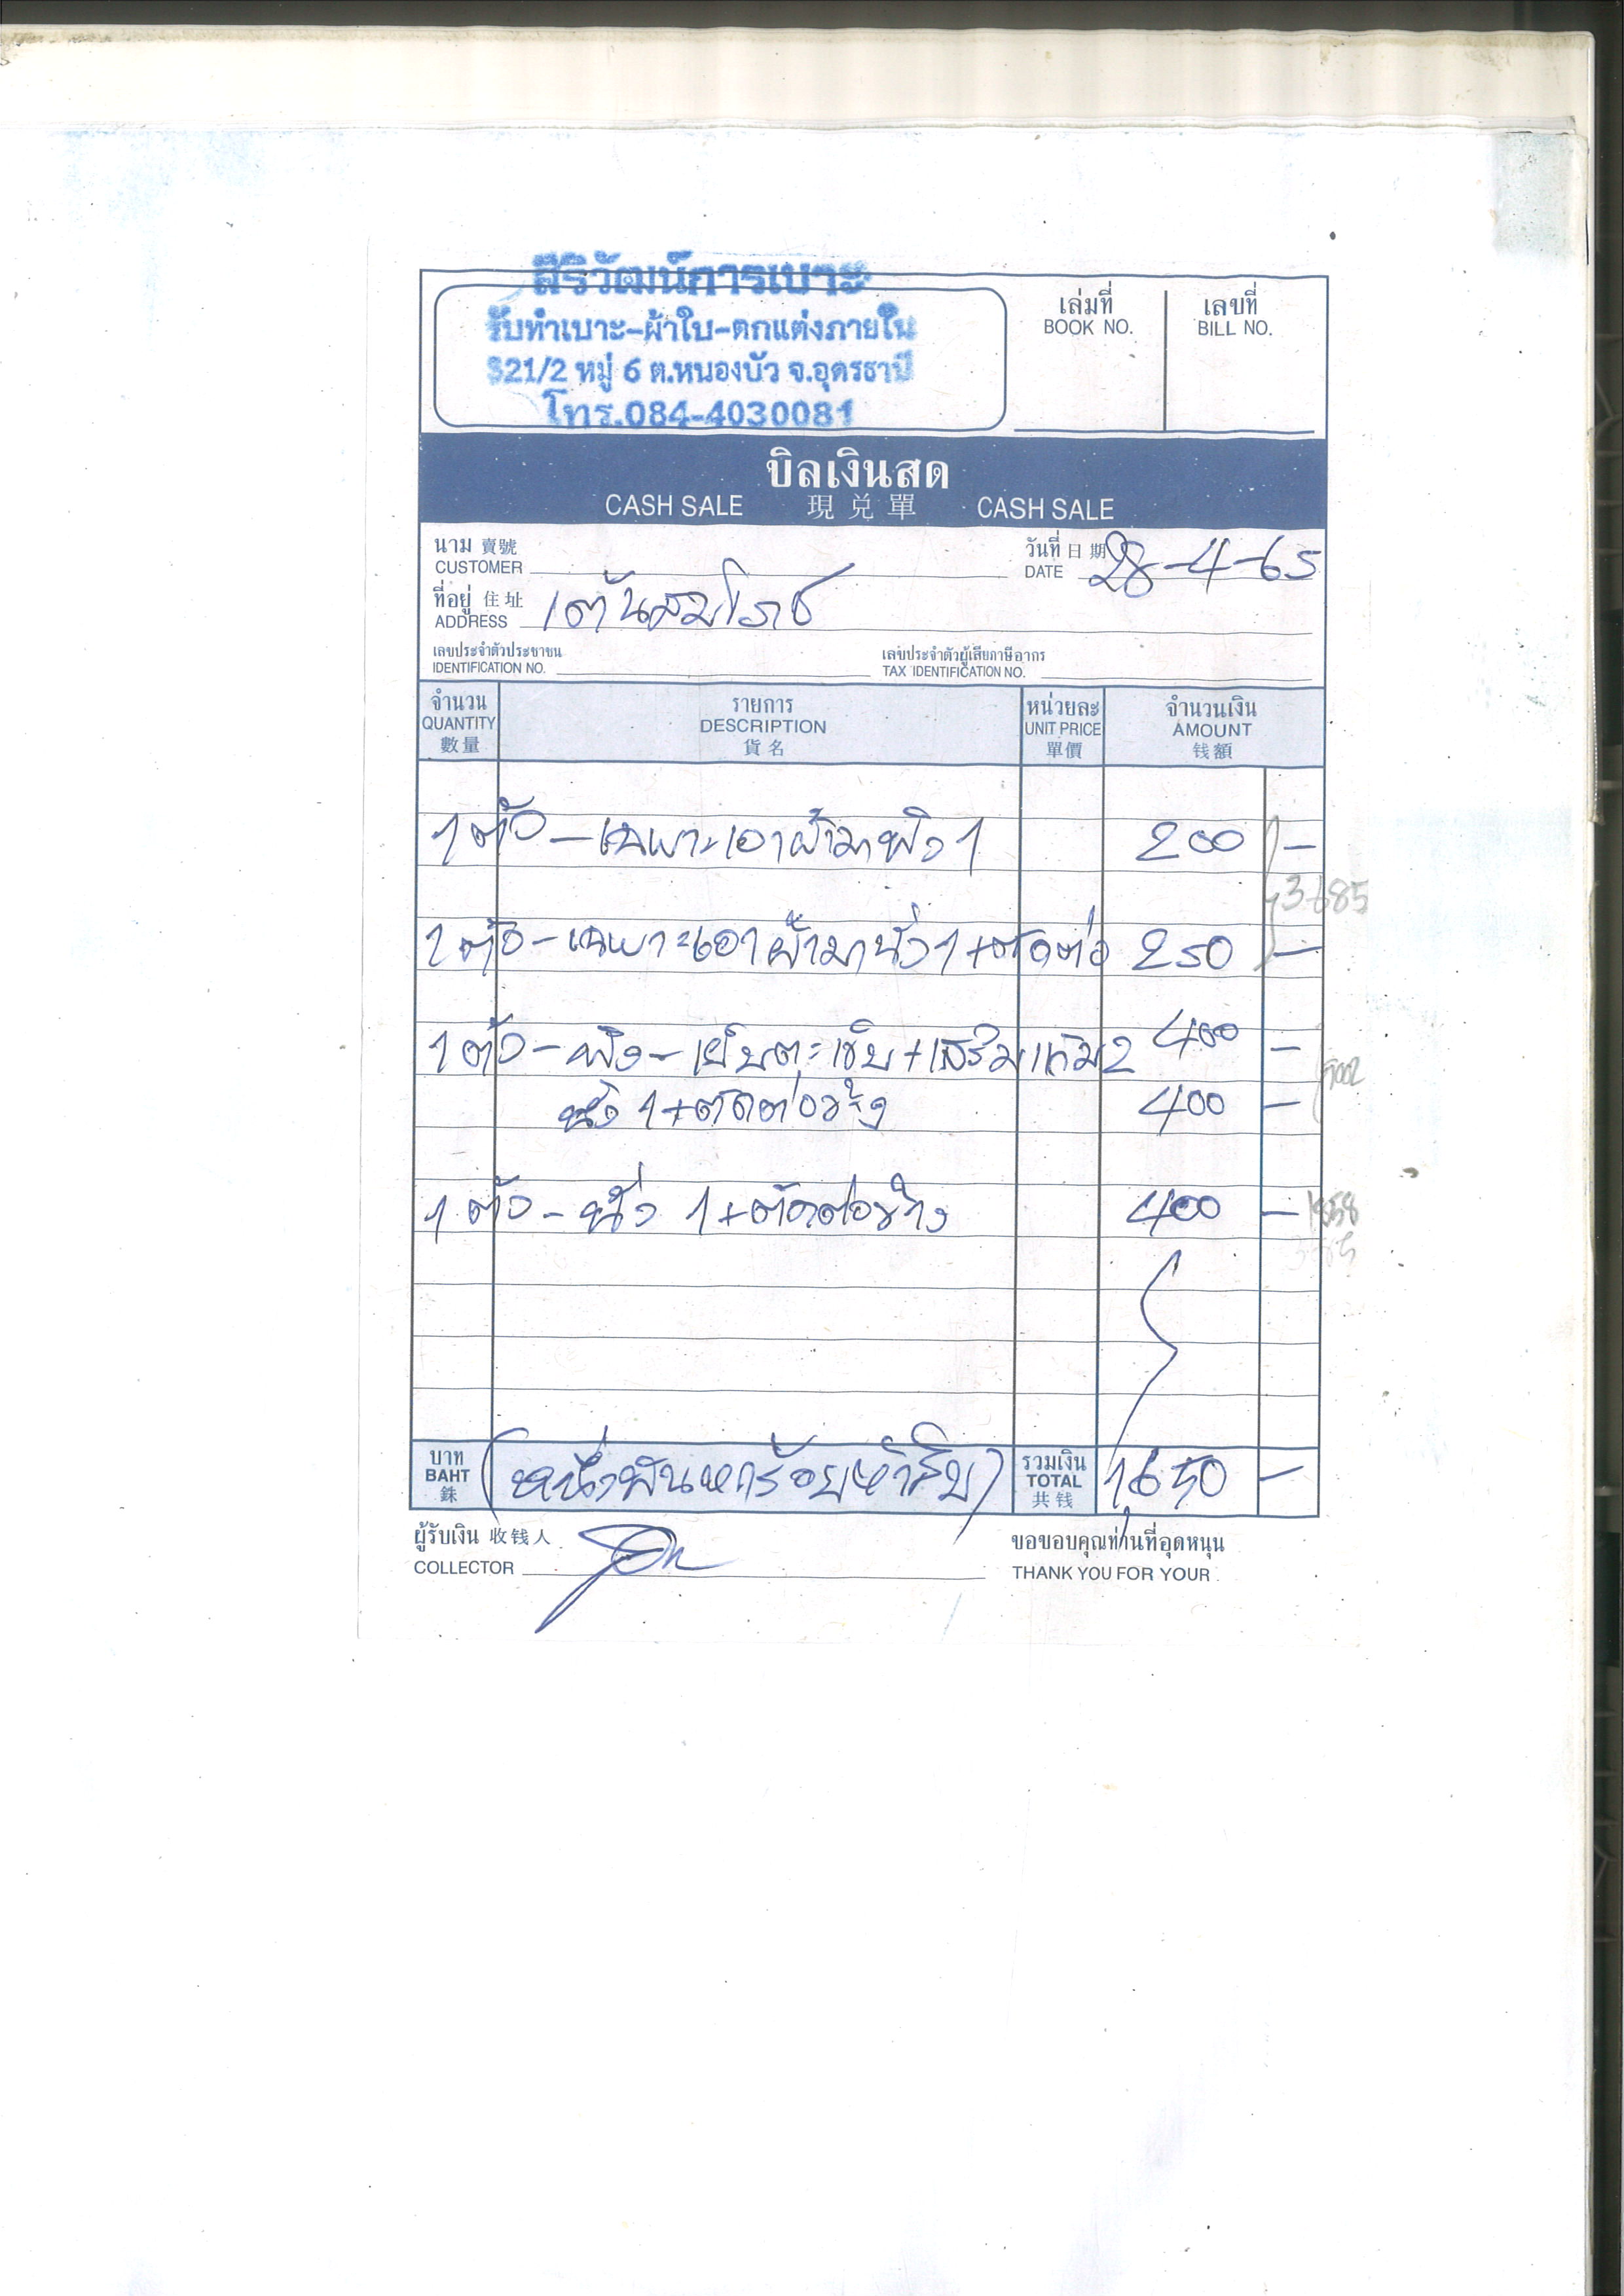 สิริวัฒน์การเบาะ
รับทำเบาะ-ผ้าใบ-ตกแต่งภายใน
321/2 หมู่ 6 ต.หนองบัว จ.อุดรธานี
โทร.084-4030081
เล่มที่ เลขที่
BOOK NO. BILL NO.
บิลเงินสด
CASH SALE 現兌單 CASH SALE
นาม 賣號 วันที่ 日期 28-4-65
CUSTOMER DATE
ที่อยู่ 住址 เต้นสมโภช
ADDRESS
เลขประจำตัวประชาชน เลขประจำตัวผู้เสียภาษีอากร
IDENTIFICATION NO. TAX IDENTIFICATION NO.
จำนวน รายการ หน่วยละ จำนวนเงิน
QUANTITY DESCRIPTION UNIT PRICE AMOUNT
數量 貨名 單價 钱額
1 ตัว - เฉพาะเอาผ้ามาพิง 1 200 -
3-685
1 ตัว - เฉพาะเอาผ้ามานั่ง 1 + ตัดต่อ 250 -
1 ตัว - พิง - เย็บตะเข็บ + เสริมแก้ม 2 400 -
นั่ง 1 + ตัดต่อข้าง 400 -
1 ตัว - นั่ง 1 + ตัดต่อข้าง 400 -
บาท (หนึ่งพันหกร้อยห้าสิบ) รวมเงิน 1650 -
BAHT TOTAL
銖 共钱
ผู้รับเงิน 收钱人 ขอขอบคุณท่านที่อุดหนุน
COLLECTOR THANK YOU FOR YOUR